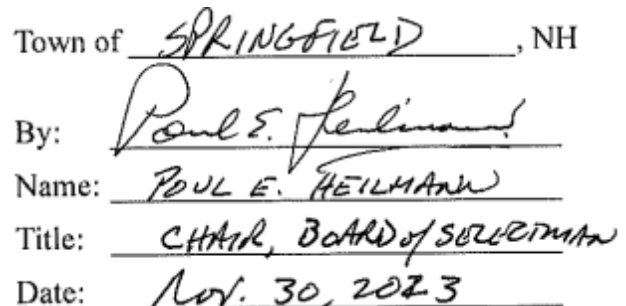 Town of SPRINGFIELD, NH
By: Poul E. Heilmann
Name: POUL E. HEILMANN
Title: CHAIR, BOARD of SELECTMAN
Date: Nov. 30, 2023